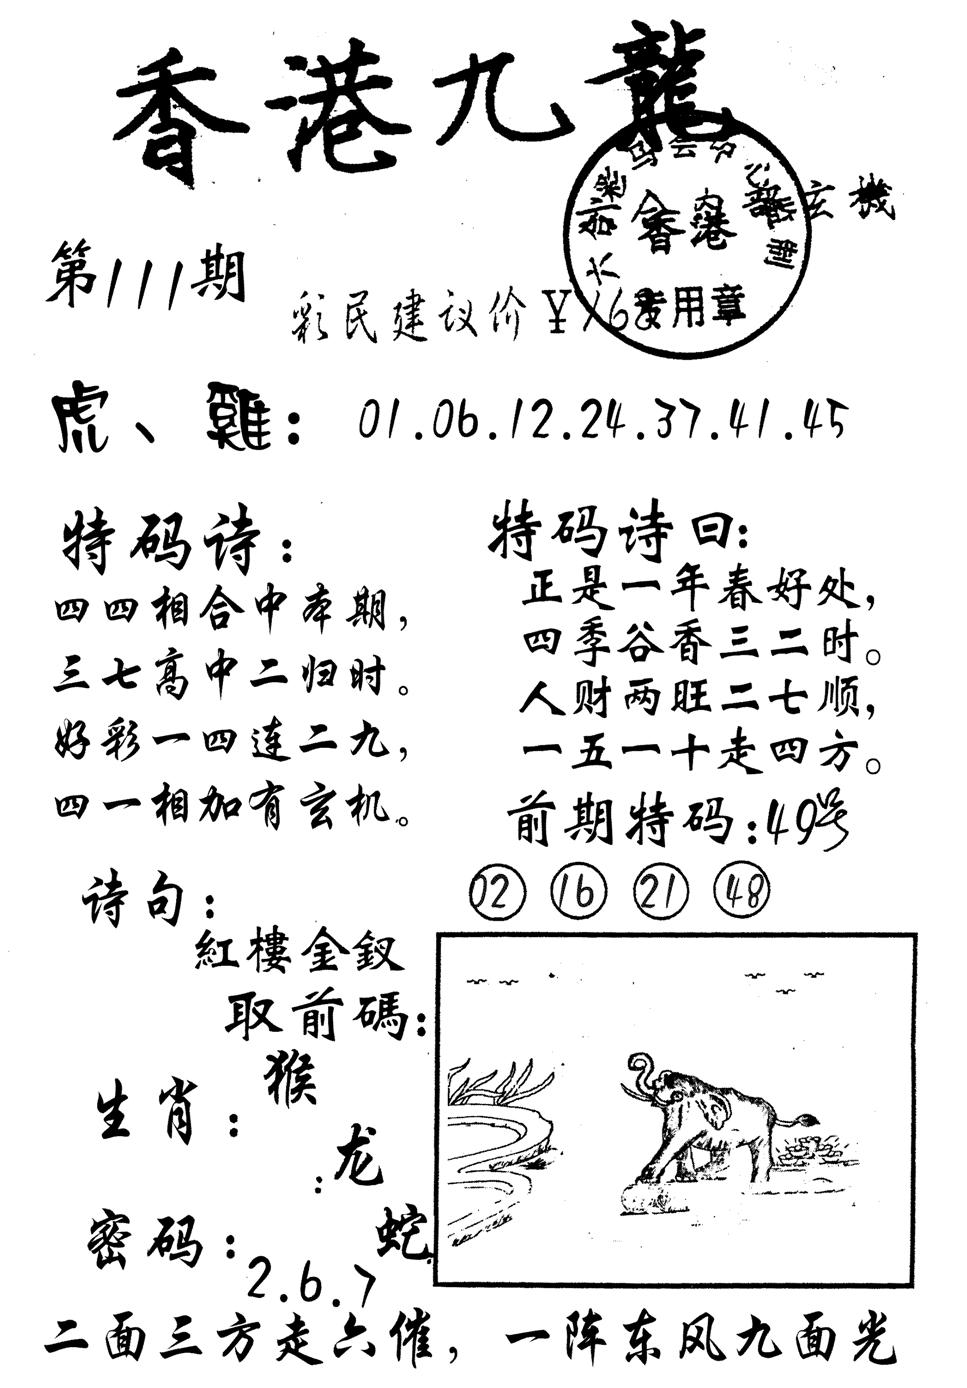 香港九龍
玄機
香港
专用章
第111期
彩民建议价¥168
虎、雞：01.06.12.24.37.41.45
特码诗：
四四相合中本期，
三七高中二归时。
好彩一四连二九，
四一相加有玄机。
特码诗曰：
正是一年春好处，
四季谷香三二时。
人财两旺二七顺，
一五一十走四方。
前期特码：49号
02 16 21 48
诗句：
紅樓金釵
取前碼：
生肖：猴
：龙
蛇
密码：2.6.7
二面三方走六催，一阵东风九面光